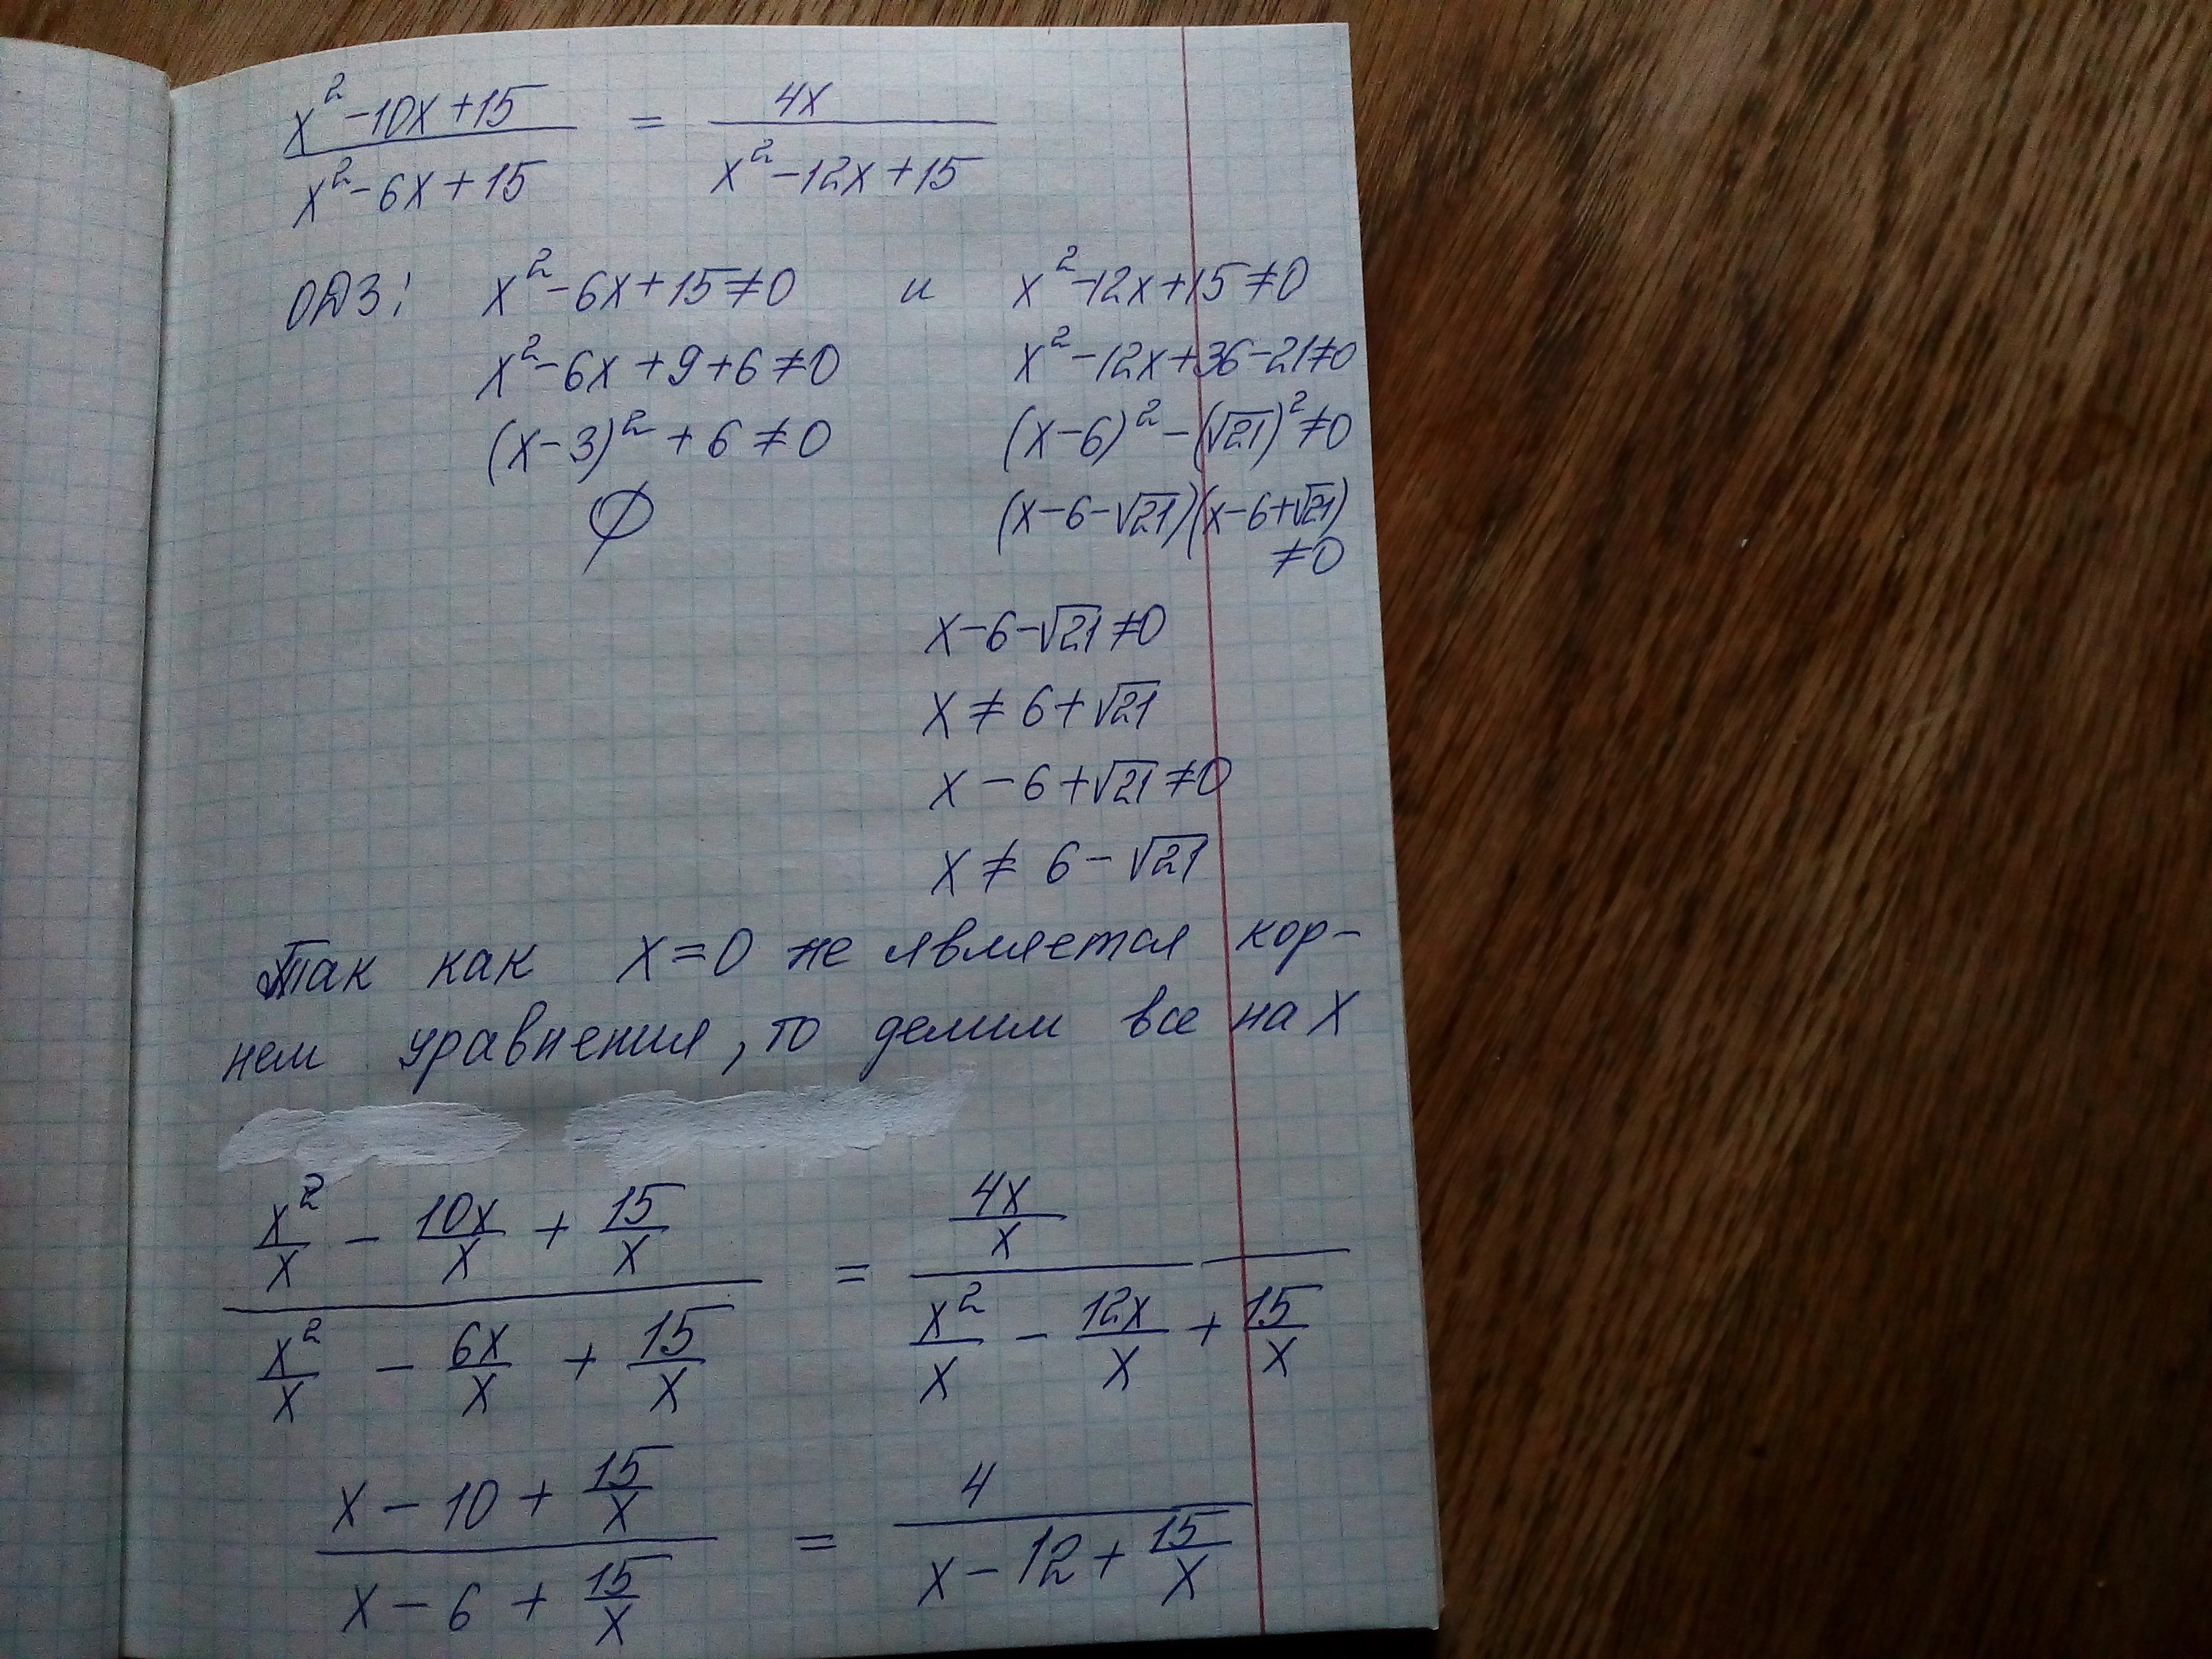 x² - 10x + 15 / x² - 6x + 15 = 4x / x² - 12x + 15
ОДЗ: x² - 6x + 15 ≠ 0 и x² - 12x + 15 ≠ 0
x² - 6x + 9 + 6 ≠ 0 x² - 12x + 36 - 21 ≠ 0
(x - 3)² + 6 ≠ 0 (x - 6)² - (√21)² ≠ 0
∅ (x - 6 - √21)(x - 6 + √21)
≠ 0
x - 6 - √21 ≠ 0
x ≠ 6 + √21
x - 6 + √21 ≠ 0
x ≠ 6 - √21
Так как x = 0 не является кор-
нем уравнения, то делим все на x
x²/x - 10x/x + 15/x / x²/x - 6x/x + 15/x = 4x/x / x²/x - 12x/x + 15/x
x - 10 + 15/x / x - 6 + 15/x = 4 / x - 12 + 15/x